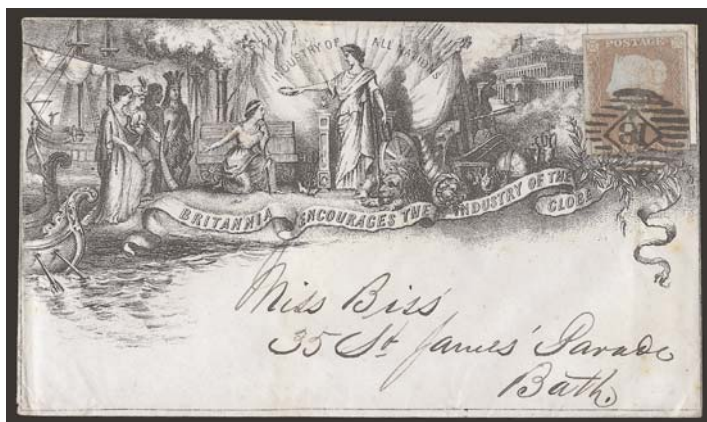 INDUSTRY OF ALL NATIONS
POSTAGE
18
BRITANNIA ENCOURAGES THE INDUSTRY OF THE GLOBE
Miss Biss
35 St James' Parade
Bath.